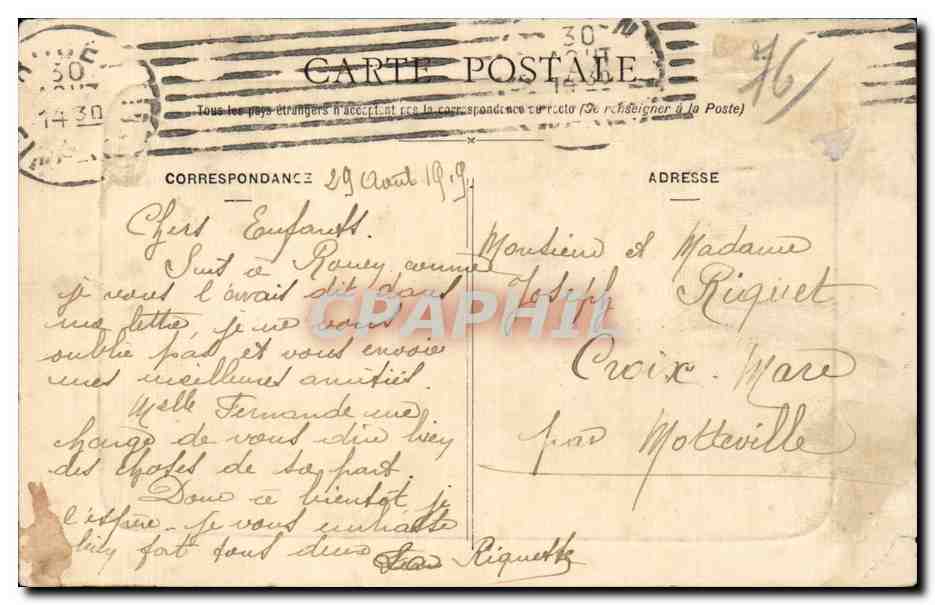 30
AOUT
14 30
30
AOUT
14 30
76
CARTE POSTALE
Tous les pays étrangers n'acceptent pas la correspondance au recto (Se renseigner à la Poste)
CORRESPONDANCE 29 Août 19.9
Chers Enfants.
Suis à Rouen comme
je vous l'avais dit dans
ma lettre, je ne vous
oublie pas et vous envoie
mes meilleures amitiés.
Melle Fernande me
charge de vous dire bien
des choses de sa part.
Donc à bientôt je
l'espère. je vous embrasse
bien fort tous deux
Riquette
ADRESSE
Monsieur et Madame
Joseph Riquet
Croix-Mare
par Motteville
CPAPHIL